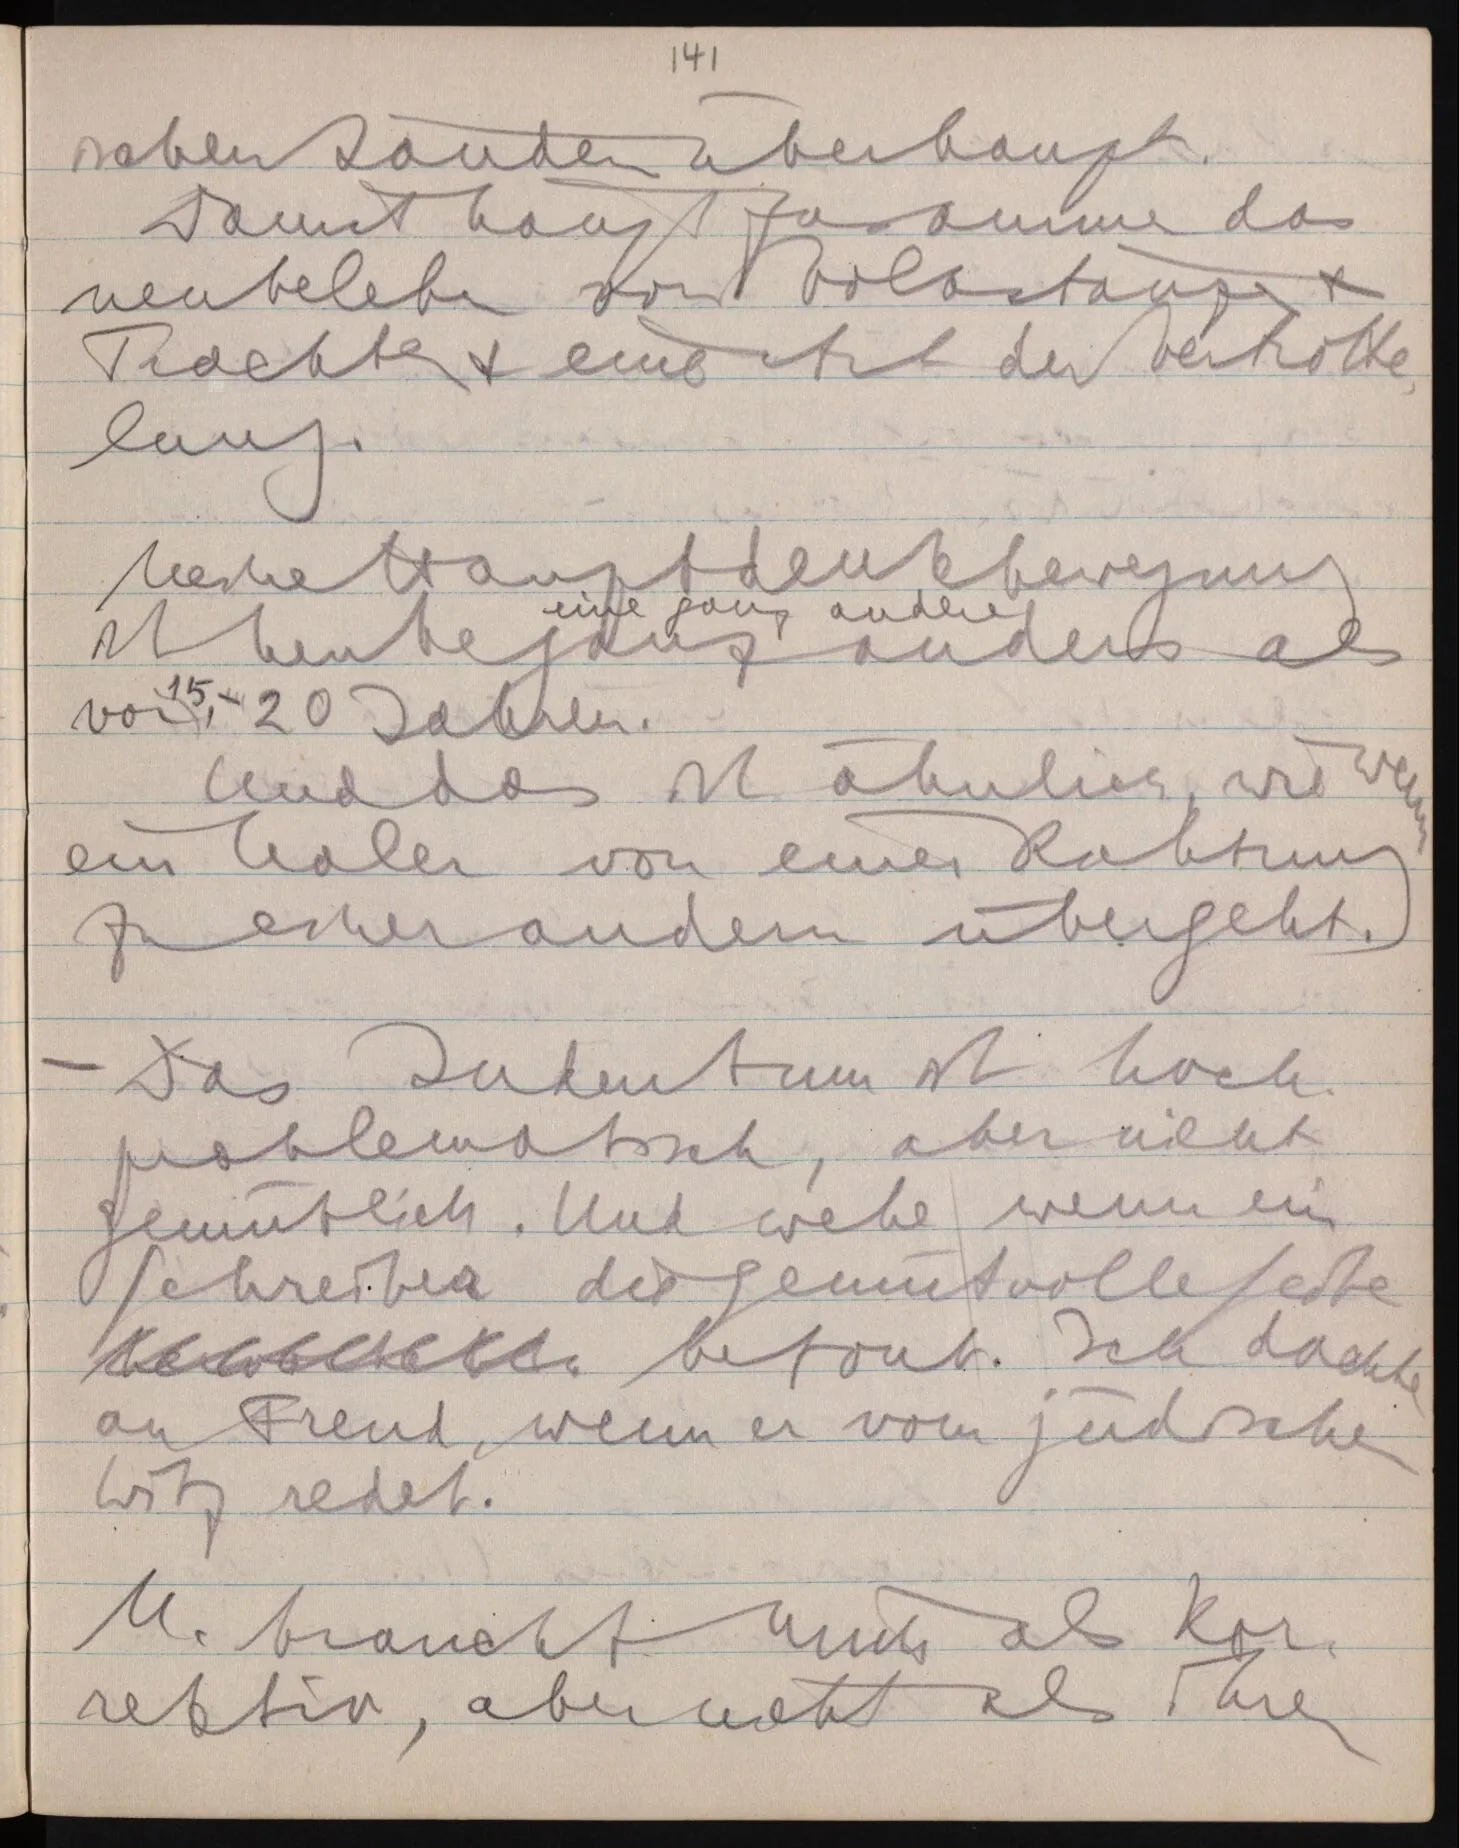 141
schen Landen überhaupt.
Damit hängt zusammen das
neubeleben von Volkstänzen &
Trachten & eine Art der Vertrotte-
lung.
Meine Hauptdenkbewegung
ist heute ganz anders als
eine ganz andere
vor 15-20 Jahren.
Und das ist ähnlich, wie wenn
ein Maler von einer Richtung
zu einer andern übergeht.
– Das Judentum ist hoch-
problematisch, aber nicht
gemütlich. Und wehe wenn ein
Schreiber die gemütvolle Seite
betont. Ich dachte
an Freud, wenn er vom jüdischen
Witz redet.
M. braucht mich als Kor-
rektiv, aber nicht als ihren